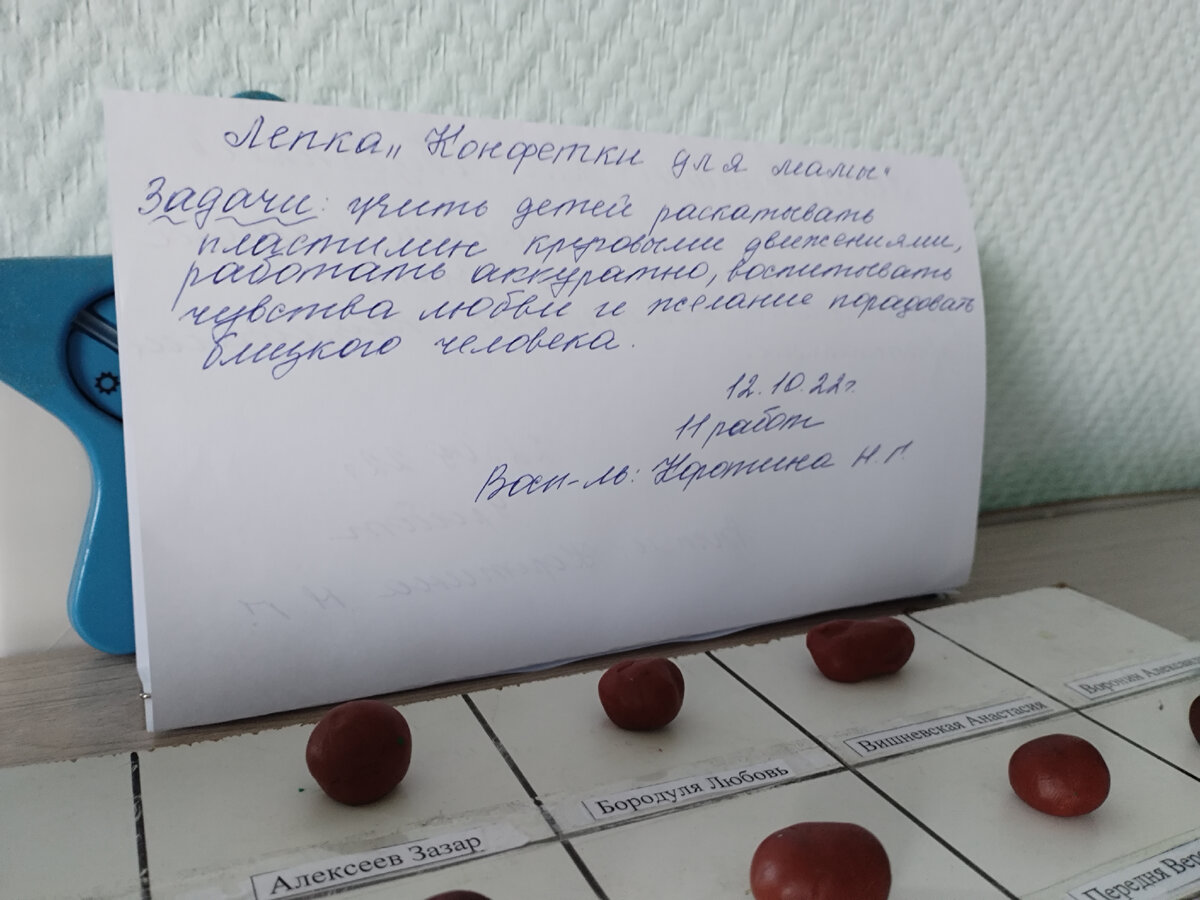 Лепка „Конфетки для мамы"
Задачи: учить детей раскатывать
пластилин круговыми движениями,
работать аккуратно, воспитывать
чувства любви и желание порадовать
близкого человека.
12.10.22г.
11 работ
Восп-ль: Коротина Н.Г.
Воронин
Вишневская Анастасия
Бородуля Любовь
Алексеев Зазар
Передня